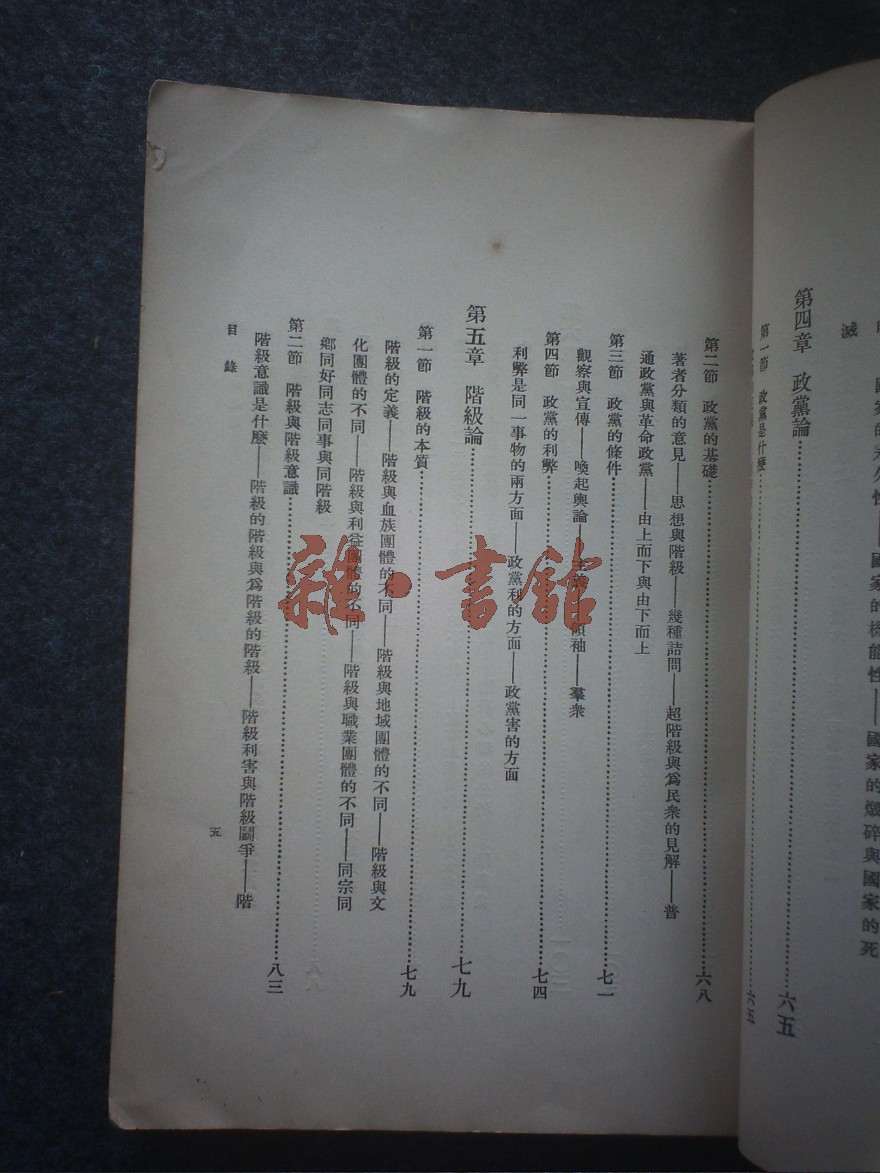 國家的機能性——國家的燬碎與國家的死
滅
第四章 政黨論……六五
第一節 政黨是什麼……六五
第二節 政黨的基礎……六八
著者分類的意見——思想與階級——幾種詰問——超階級與爲民衆的見解——普
通政黨與革命政黨——由上而下與由下而上
第三節 政黨的條件……七一
觀察與宣傳——喚起輿論——主義——領袖——羣衆
第四節 政黨的利弊……七四
利弊是同一事物的兩方面——政黨利的方面——政黨害的方面
第五章 階級論……七九
第一節 階級的本質……七九
階級的定義——階級與血族團體的不同——階級與地域團體的不同——階級與文
化團體的不同——階級與利益團體的不同——階級與職業團體的不同——同宗同
鄉同好同志同事與同階級
第二節 階級與階級意識……八三
階級意識是什麼——階級的階級與爲階級的階級——階級利害與階級鬭爭——階
目錄
五
雜·書館